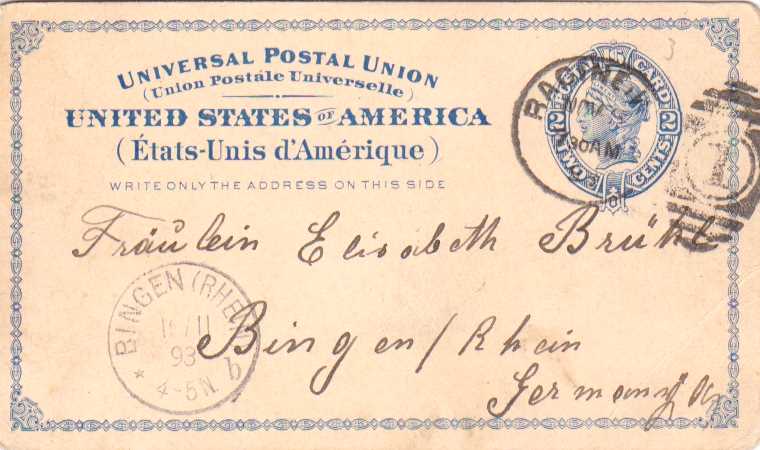 UNIVERSAL POSTAL UNION
(Union Postale Universelle)
UNITED STATES OF AMERICA
(États-Unis d'Amérique)
WRITE ONLY THE ADDRESS ON THIS SIDE
CARD
2 2
TWO CENTS
NOV
30 AM
3
1
Fräulein Elisabeth Brühl
BINGEN (RHEIN)
11
93
4-5N.
b
Bingen/Rhein
Germany